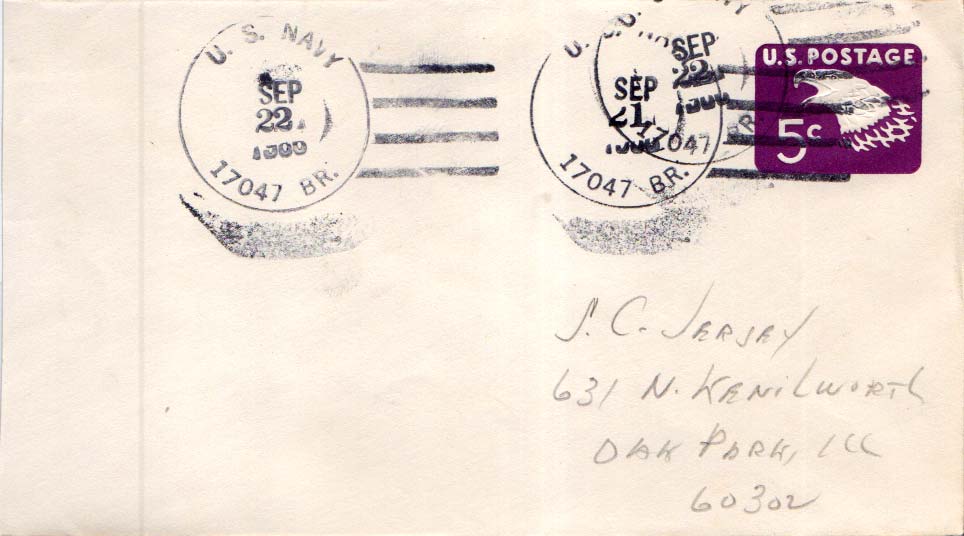 U. S. NAVY
SEP
22
17047 BR.
U. S. NAVY
SEP
21
17047 BR.
SEP
22
17047 BR.
U.S. POSTAGE
5c
J. C. JERSEY
631 N. KENILWORTH
OAK PARK, ILL
60302